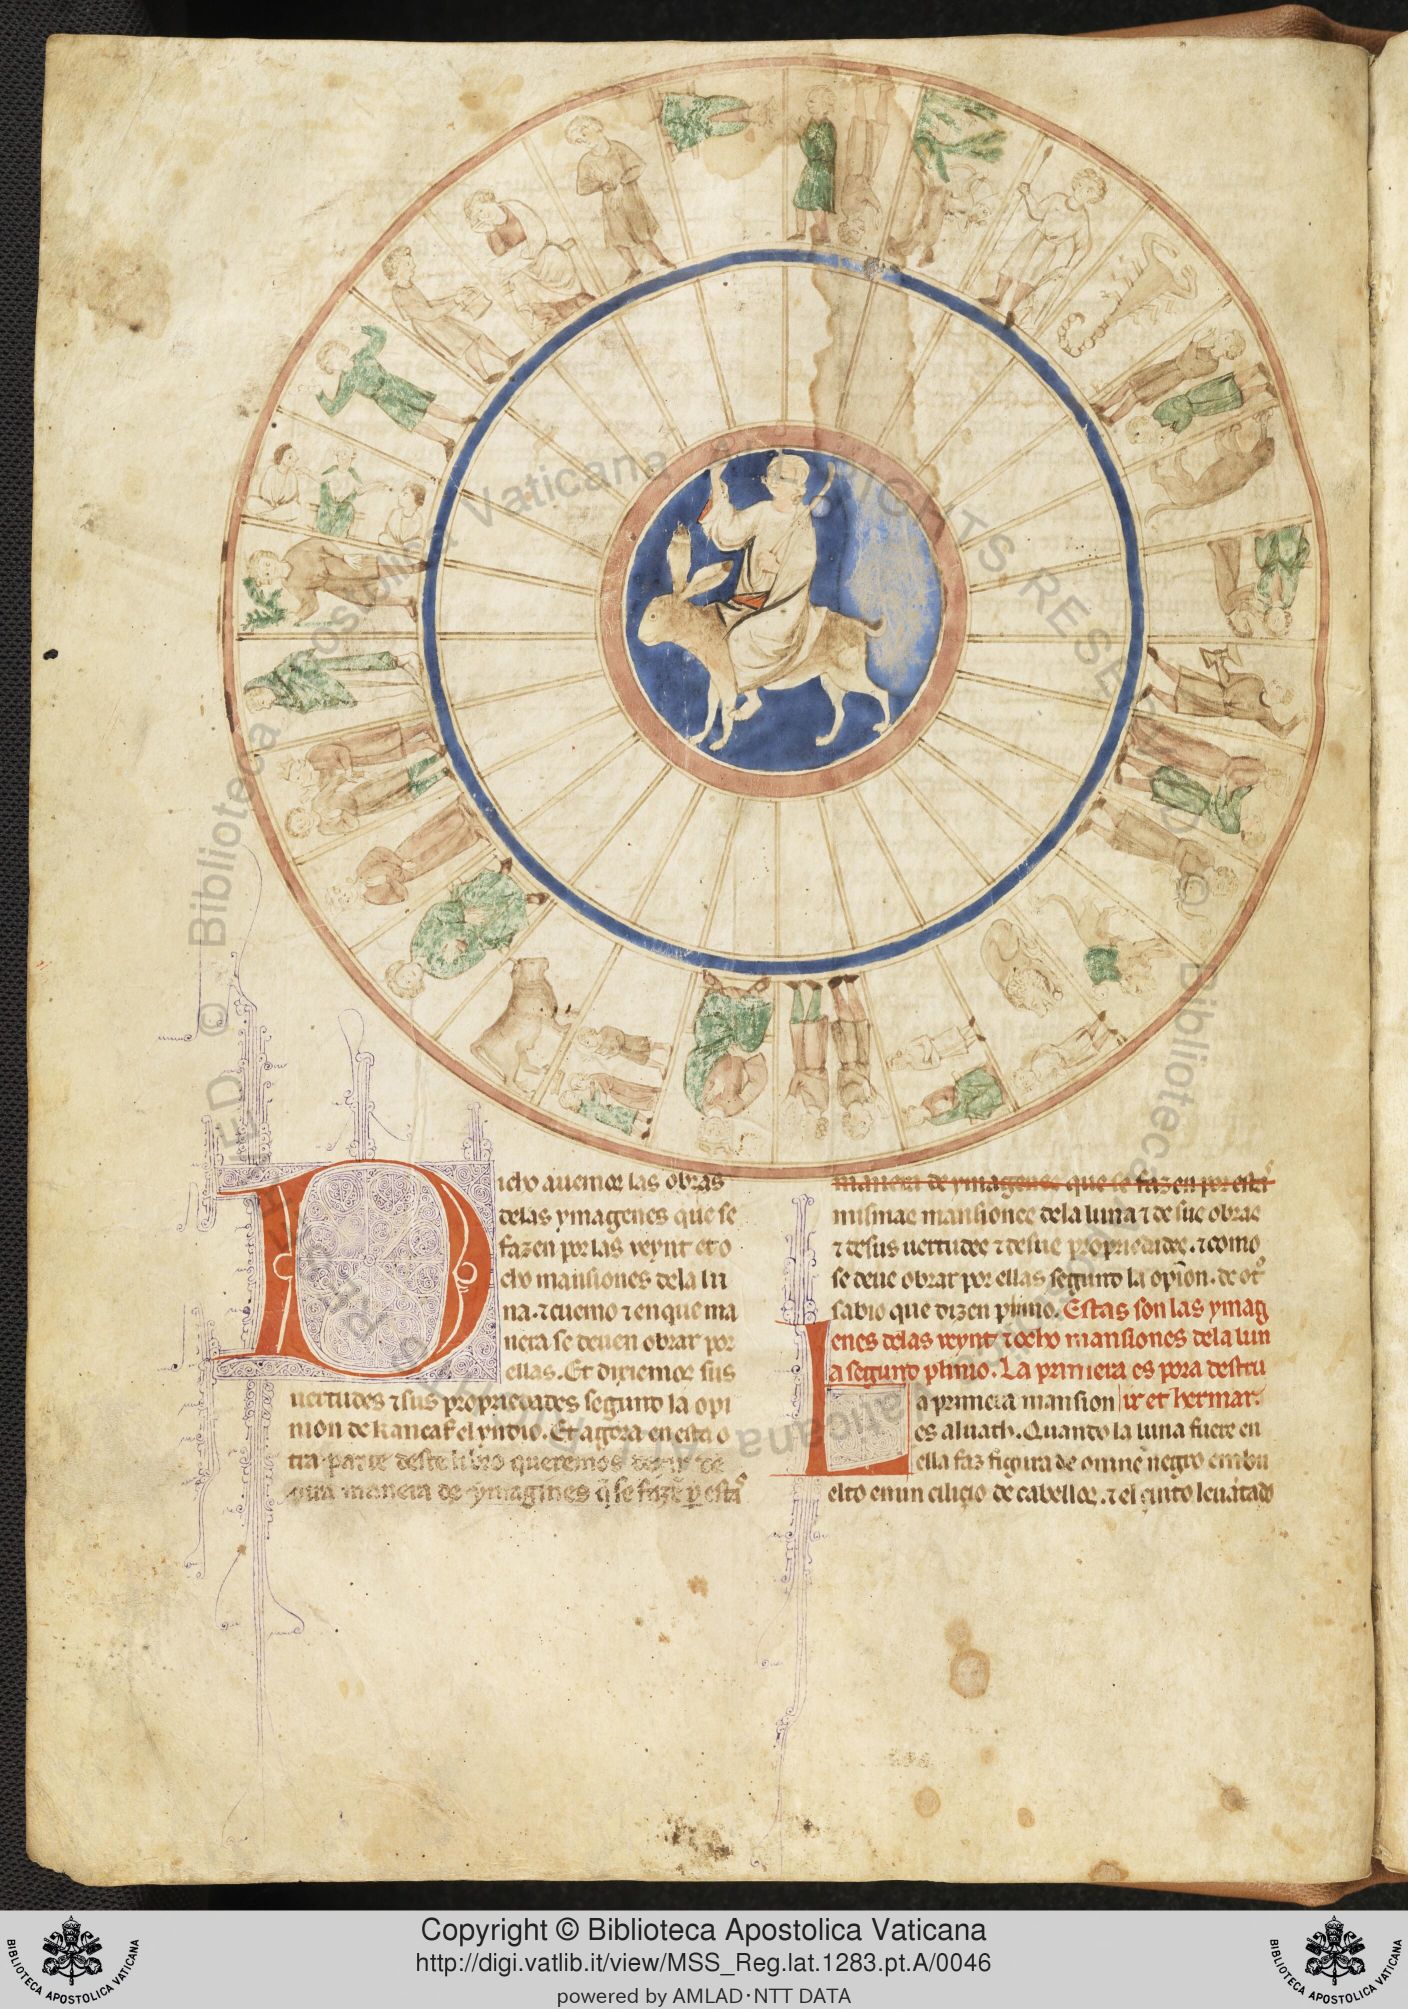 Dicho auemos las obras
delas ymagenes que se
fazen por las veynt et o
cho mansiones dela lu
na. ⁊ cuemo ⁊ en que ma
nera se deuen obrar por
ellas. Et dixiemos sus
uertudes ⁊ sus propriedades segunt la opi
nion de kancaf el yndio. Et agora en esta o
tra parte deste libro queremos dezir de
otra manera de ymagines q̃ se fazẽ ꝑ esta
manera de ymagenes que se fazen por esta
mismas mansiones dela luna ⁊ de sus obras
⁊ de sus uertudes ⁊ de sus propriedades. ⁊ como
se deue obrar por ellas segunt la opiõn. de ot̊
sabio que dizen plinio. Estas son las ymag
enes delas veynt ⁊ ocho mansiones dela lun
a segunt plinio. La primera es pora destru
La primera mansion ir et hermar.
es aluath. Quando la luna fuere en
ella faz figura de omne negro enbu
elto en un ciliçio de cabellos. ⁊ el çinto leuãtado
© Biblioteca Apostolica Vaticana ALL RIGHTS RESERVED
Copyright © Biblioteca Apostolica Vaticana
http://digi.vatlib.it/view/MSS_Reg.lat.1283.pt.A/0046
powered by AMLAD·NTT DATA
BIBLIOTECA APOSTOLICA VATICANA
BIBLIOTECA APOSTOLICA VATICANA